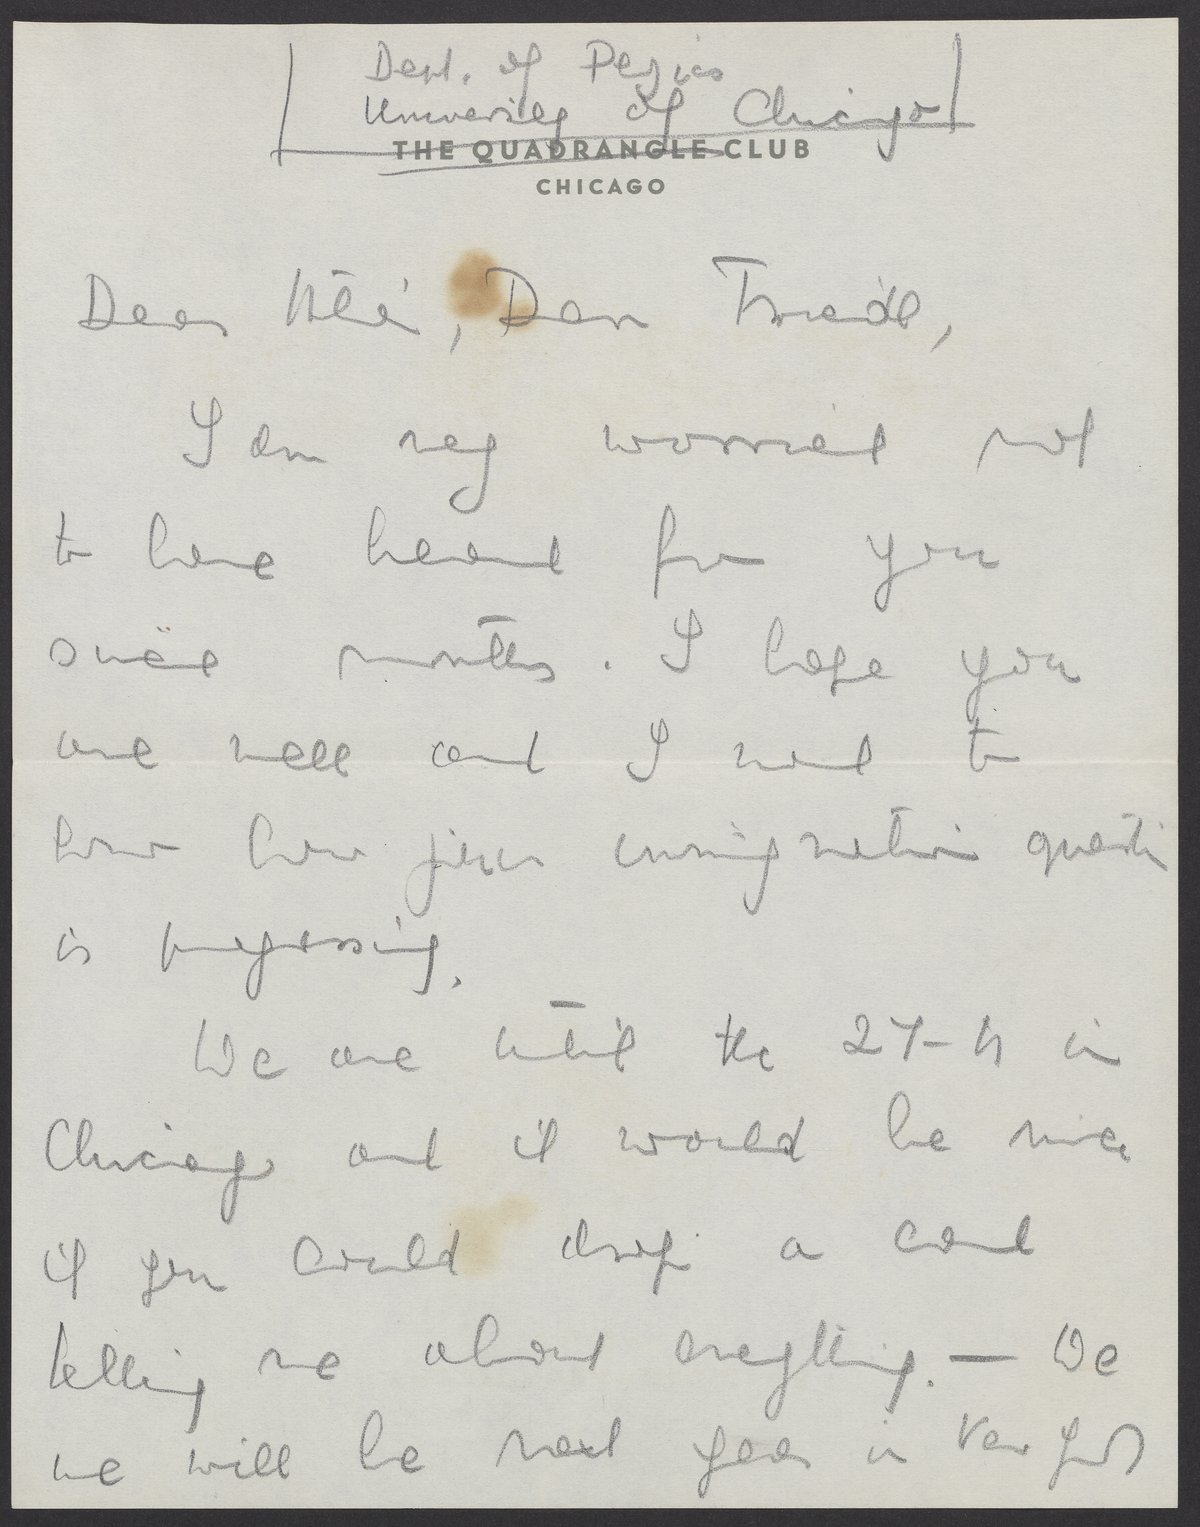 Dept. of Physics
University of Chicago
THE QUADRANGLE CLUB
CHICAGO
Dear Dear
I am very worried not
to have heard from you
since months. I hope you
are well and I want to
know how your immigration question
is progressing.
We are until the 27-th in
Chicago and it would be nice
if you could drop a card
telling me about everything. — We
we will be next year in New York